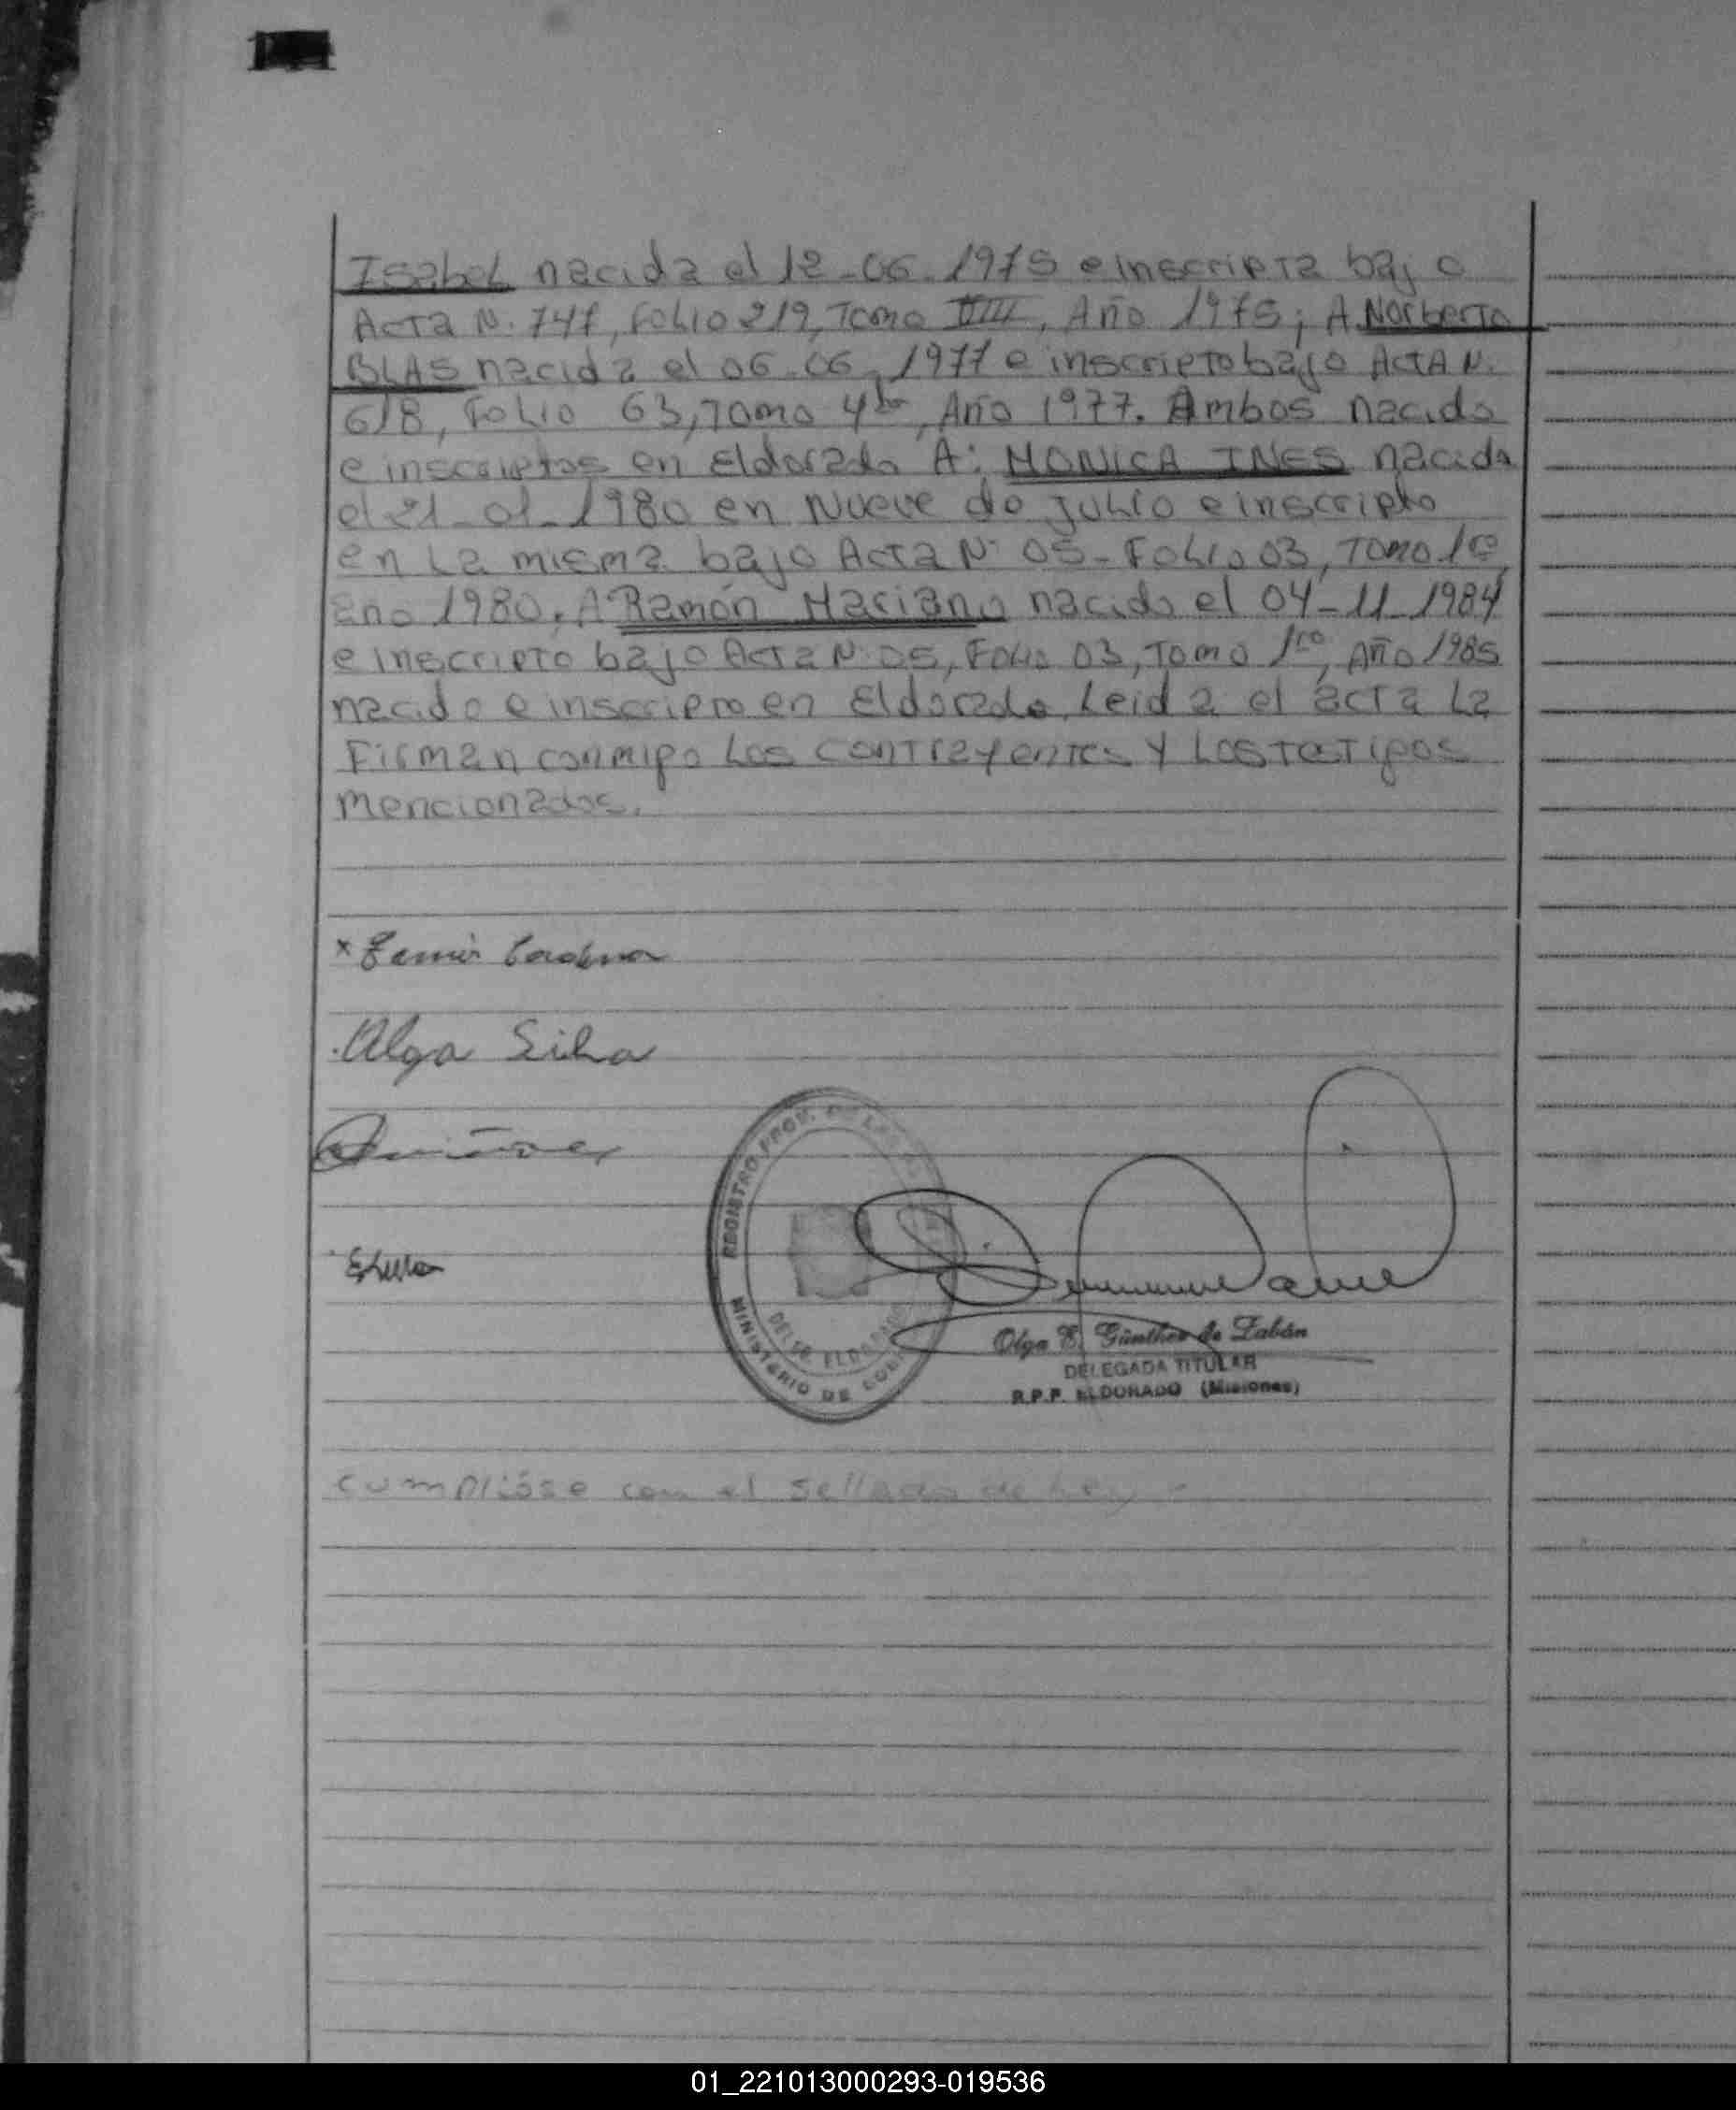 Isabel nacida el 12-06-1975 e inscripta bajo
Acta N. 747, Folio 219, Tomo IIII, Año 1975; A Norberto
BLAS nacida el 06-06-1977 e inscripto bajo Acta N.
618, Folio 63, Tomo 4to, Año 1977. Ambos nacido
e inscriptos en Eldorado A: MONICA INES nacida
el 21-01-1980 en Nueve de Julio e inscripto
en La misma bajo Acta N. 05-Folio 03, Tomo 1ro,
año 1980. A Ramón Mariano nacido el 04-11-1984
e inscripto bajo Acta N. 05, Folio 03, Tomo 1ro, Año 1985
nacido e inscripto en Eldorado. Leida el acta La
Firman conmigo Los contrayentes y Los testigos
mencionados.
x
Olga Silva
REGISTRO PROV. DE LAS
MINISTERIO DE GOB
DELEG. ELDORADO
Olga E. Günther de Zabán
DELEGADA TITULAR
R.P.P. ELDORADO (Misiones)
Cumplióse con el sellado de Ley -
01_221013000293-019536